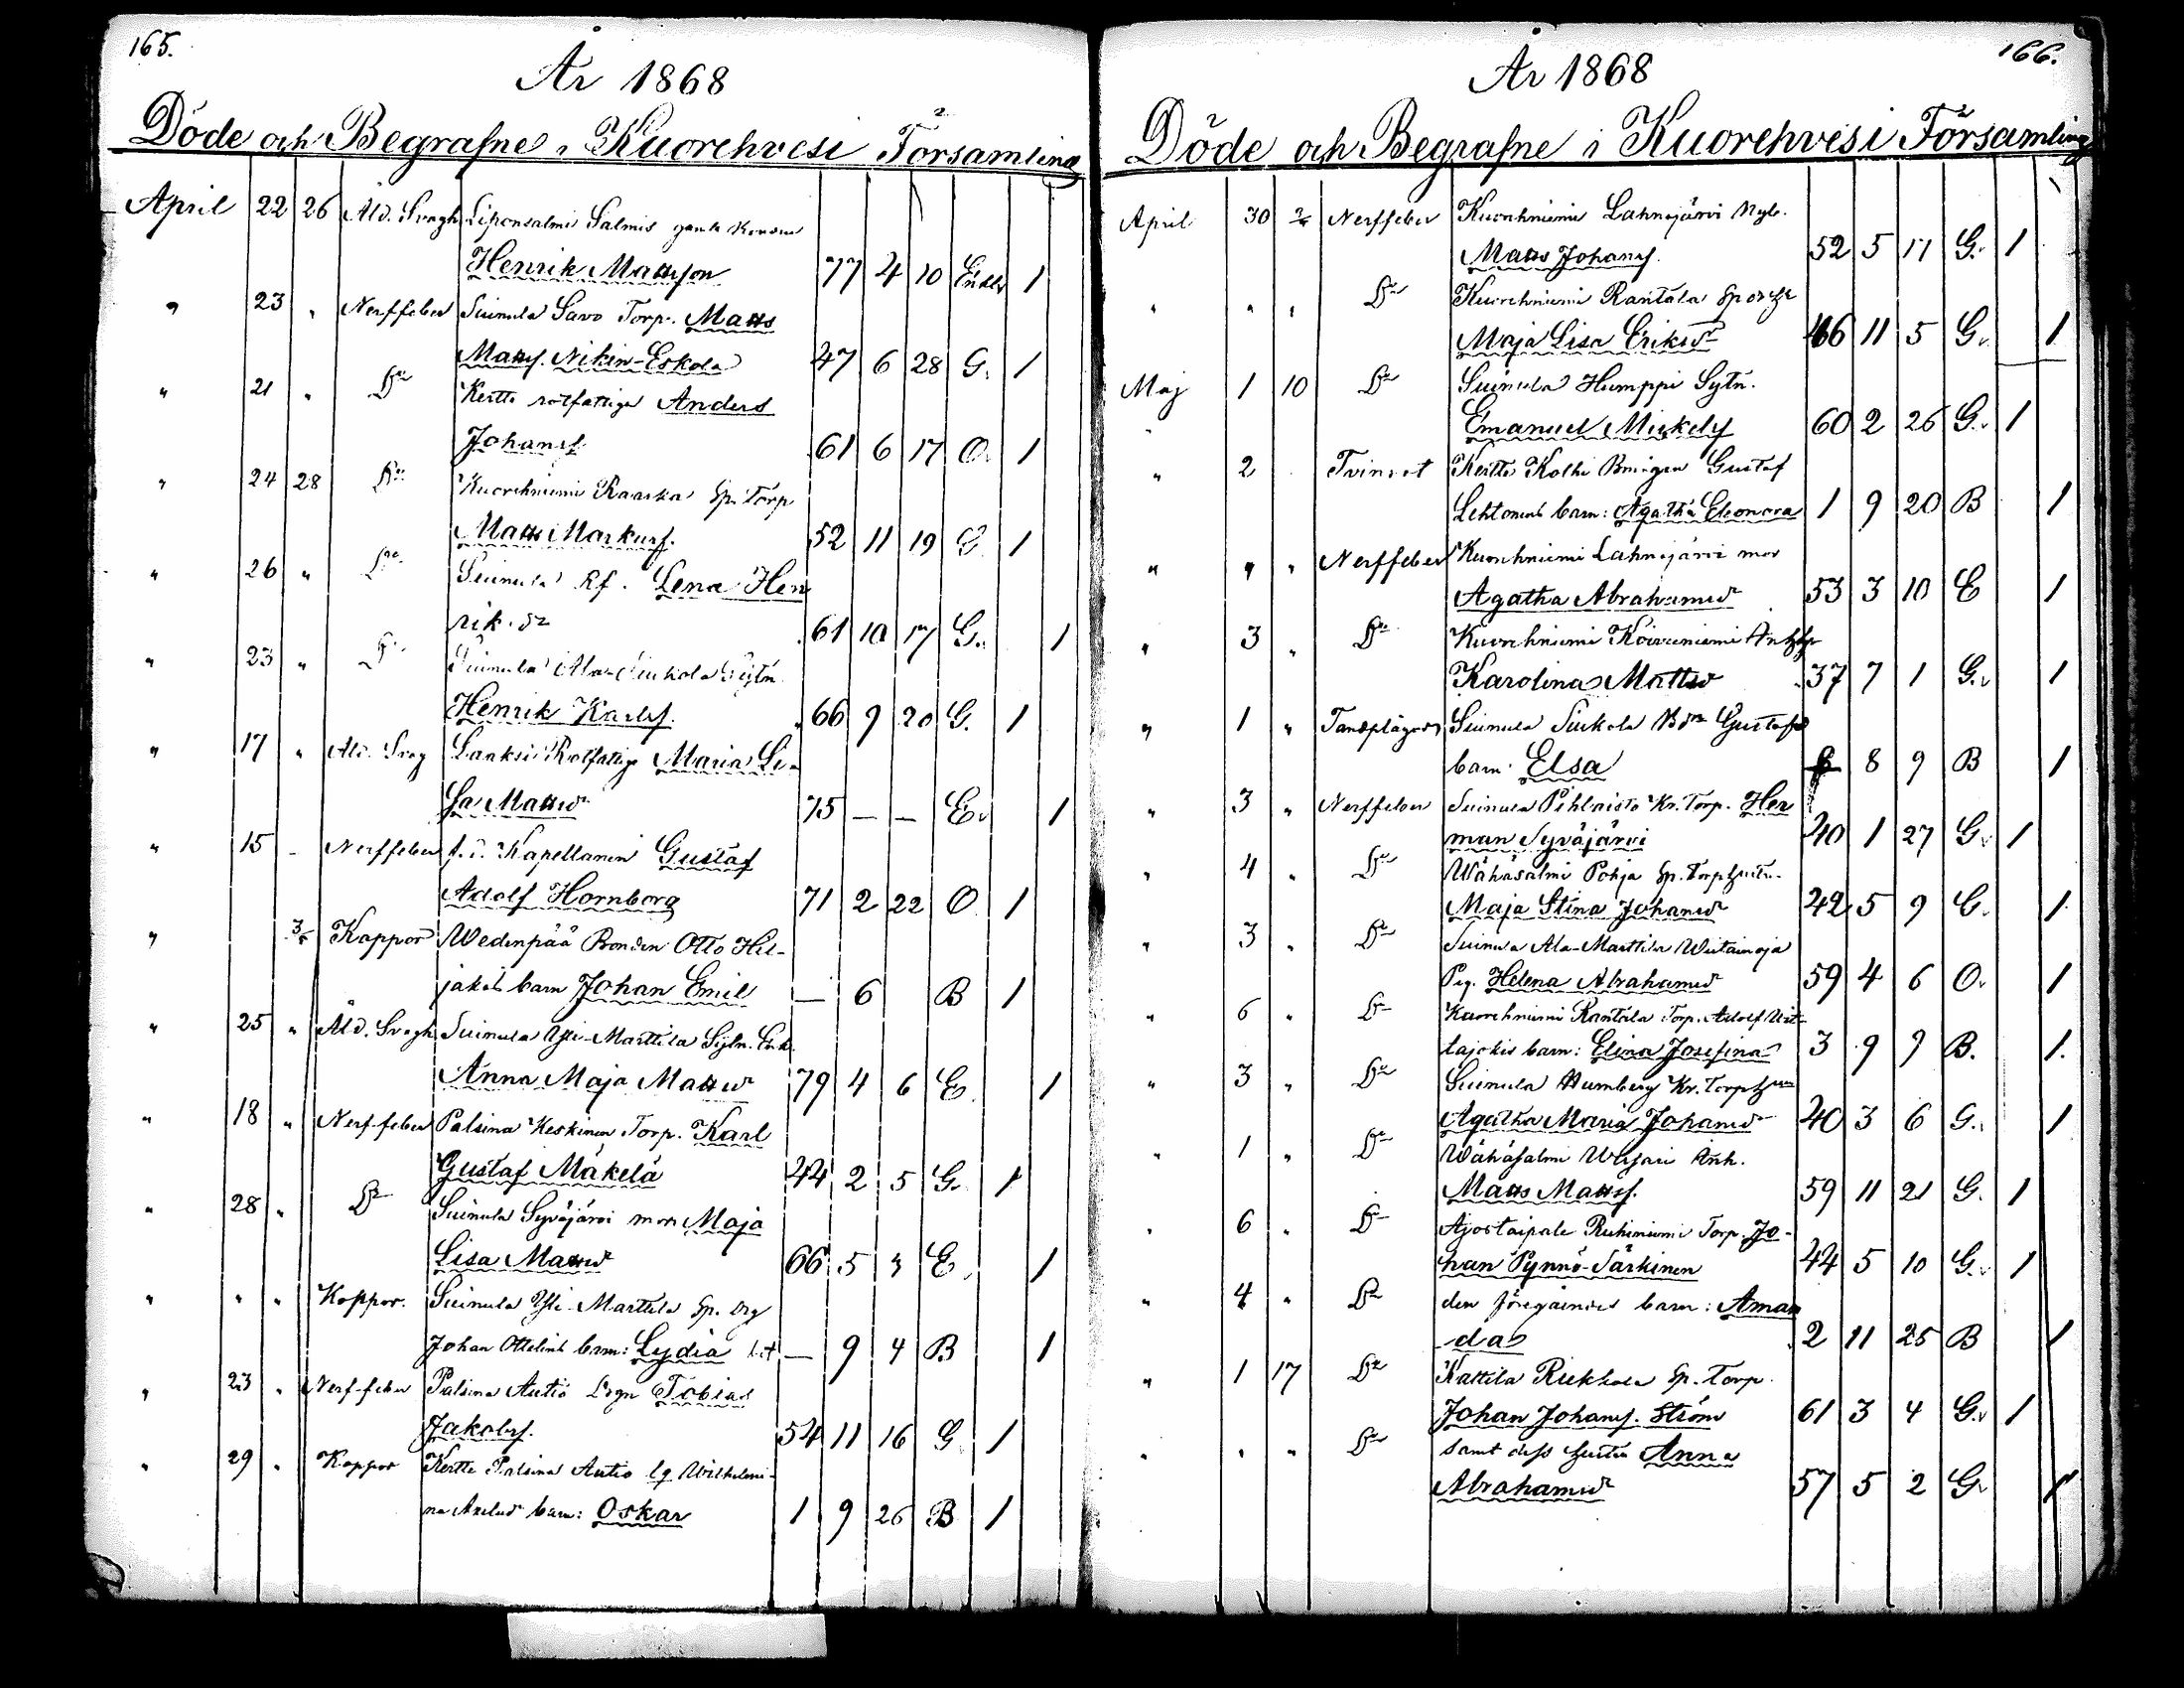 165.
År 1868
Döde och Begrafne i Kuorehvesi Församling
April 22 26 Åld. Svagh Liponsalmi Salmis gamla
Henrik Mattsson 77 4 10 Enkl. 1
" 23 " Nerffeber Suinula Savo Torp. Matts
Mattss. Nikin-Eskola 47 6 28 G. 1
" 21 " Do Kertte rotfattige Anders
Johanss. 61 6 17 O. 1
" 24 28 Do Kuorehniemi Raaska Sp. Torp
Matts Markuss. 52 11 19 G. 1
" 26 " Do Suinula Rf. Lena Hen
rik.dr 61 10 17 G. 1
" 23 " Do Suinula Ala-Siukola Sytn.
Henrik Karlss. 66 9 20 G. 1
" 17 " Åld. Svag Lanksi Rotfattige Maria Li-
sa Mattsdr 75 – – E. 1
" 15 – Nerffeber f.d. Kapellanen Gustaf
Adolf Hornborg 71 2 22 O. 1
" 3/5 Koppor Wedenpää Bonden Otto Hil-
jakas barn Johan Emil – 6 B 1
" 25 " Åld. Svagh Suinula Yli-Marttila Sytn. Enk.
Anna Maja Mattsdr 79 4 6 E. 1
" 18 " Nerf-feber Palsina Keskinen Torp. Karl
Gustaf Mäkelä 44 2 5 G. 1
" 28 " Do Suinula Syväjärvi mor Maja
Lisa Mattsdr 66 5 3 E. 1
" " " Koppor. Suinula Yli-Marttila Sp.
Johan Ottelins barn: Lydia – 9 4 B 1
" 23 " Nerf-feber Palsina Autio Tobias
Jakobss. 54 11 16 G 1
" 29 " Koppor Kertte Palsina Autio Wilhelmi-
na barn: Oskar 1 9 26 B 1
166.
År 1868
Döde och Begrafne i Kuorehvesi Församling
April 30 Nerffeber Kuorehniemi Lahnajärvi Nyb.
Matts Johanss. 52 5 17 G. 1
" " " Do Kuorehniemi Rantala Sp
Maja Lisa Eriksdr 46 11 5 G. 1
Maj 1 10 Do Suinula Humppi Sytn.
Emanuel Mickelss 60 2 26 G. 1
" 2 Tvinsot Kertte Kolhi Gustaf
Lehtonens barn: Agatha Eleonora 1 9 20 B 1
" " " Nerffeber Kuorehniemi Lahnajärvi mor
Agatha Abrahamsdr 53 3 10 E 1
" 3 " Do Kuorehniemi Koivuniemi
Karolina Mattsdr 37 7 1 G. 1
" 1 " Tandplågor Suinula Siukola Gustafs
barn Elsa 8 9 B 1
" 3 " Nerffeber Suinula Pihlaisto Kr. Torp. Her
man Syväjärvi 40 1 27 G. 1
" 4 " Do Wähäsalmi Pohja Sp. Torp hustru
Maja Stina Johansdr 42 5 9 G. 1
" 3 " Do Suinula Ala-Marttila
Pig. Helena Abrahamsdr 59 4 6 O. 1
" 6 " Do Kuorehniemi Rantala Torp. Adolf Uit-
lajokis barn: Elina Josefina 3 9 9 B. 1.
" 3 " Do Suinula Kr. Torp
Agatha Maria Johansdr 40 3 6 G. 1
" 1 " Do Wähäsalmi Inh.
Matts Mattss. 59 11 21 G. 1
" 6 " Do Ajostaipale Ruhiniemi Torp. Jo-
han Pynnö-Särkinen 44 5 10 G. 1
" 4 " Do den föregåendes barn: Aman
da 2 11 25 B 1
" 1 17 Do Kattila Riekkola Sp. Torp.
Johan Johanss. Ström 61 3 4 G. 1
" " " Do samt dess hustru Anna
Abrahamsdr 57 5 2 G. 1